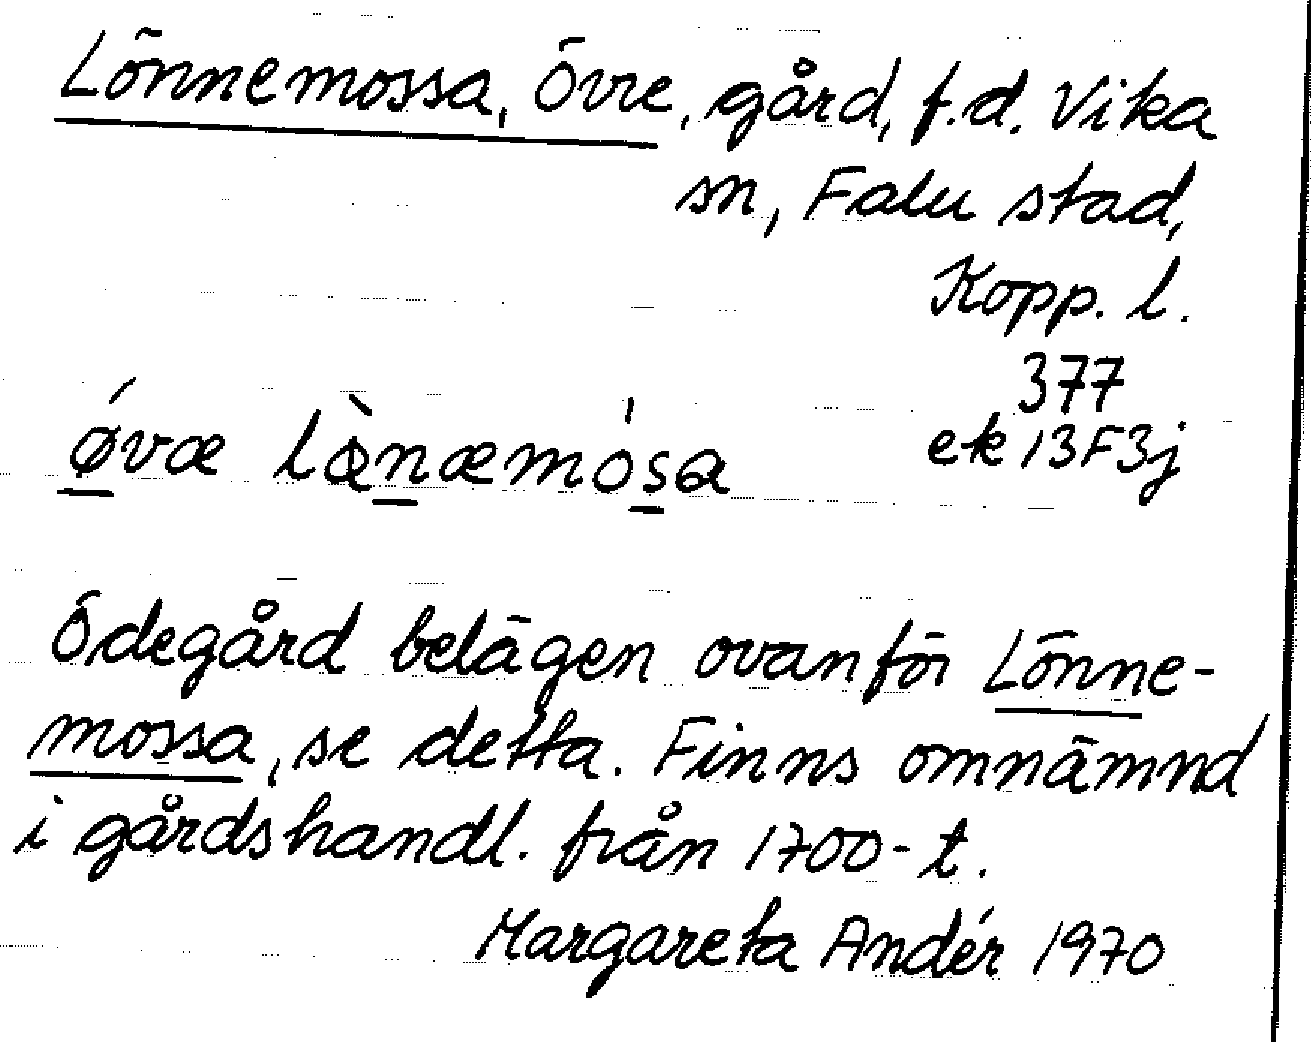 Lönnemossa, Övre, gård, f.d. Vika
sn, Falu stad,
Kopp. l.
377
ek 13F3j
ǿvæ læ̀næmósa
Ödegård belägen ovanför Lönne-
mossa, se detta. Finns omnämnd
i gårdshandl. från 1700-t.
Margareta Andér 1970